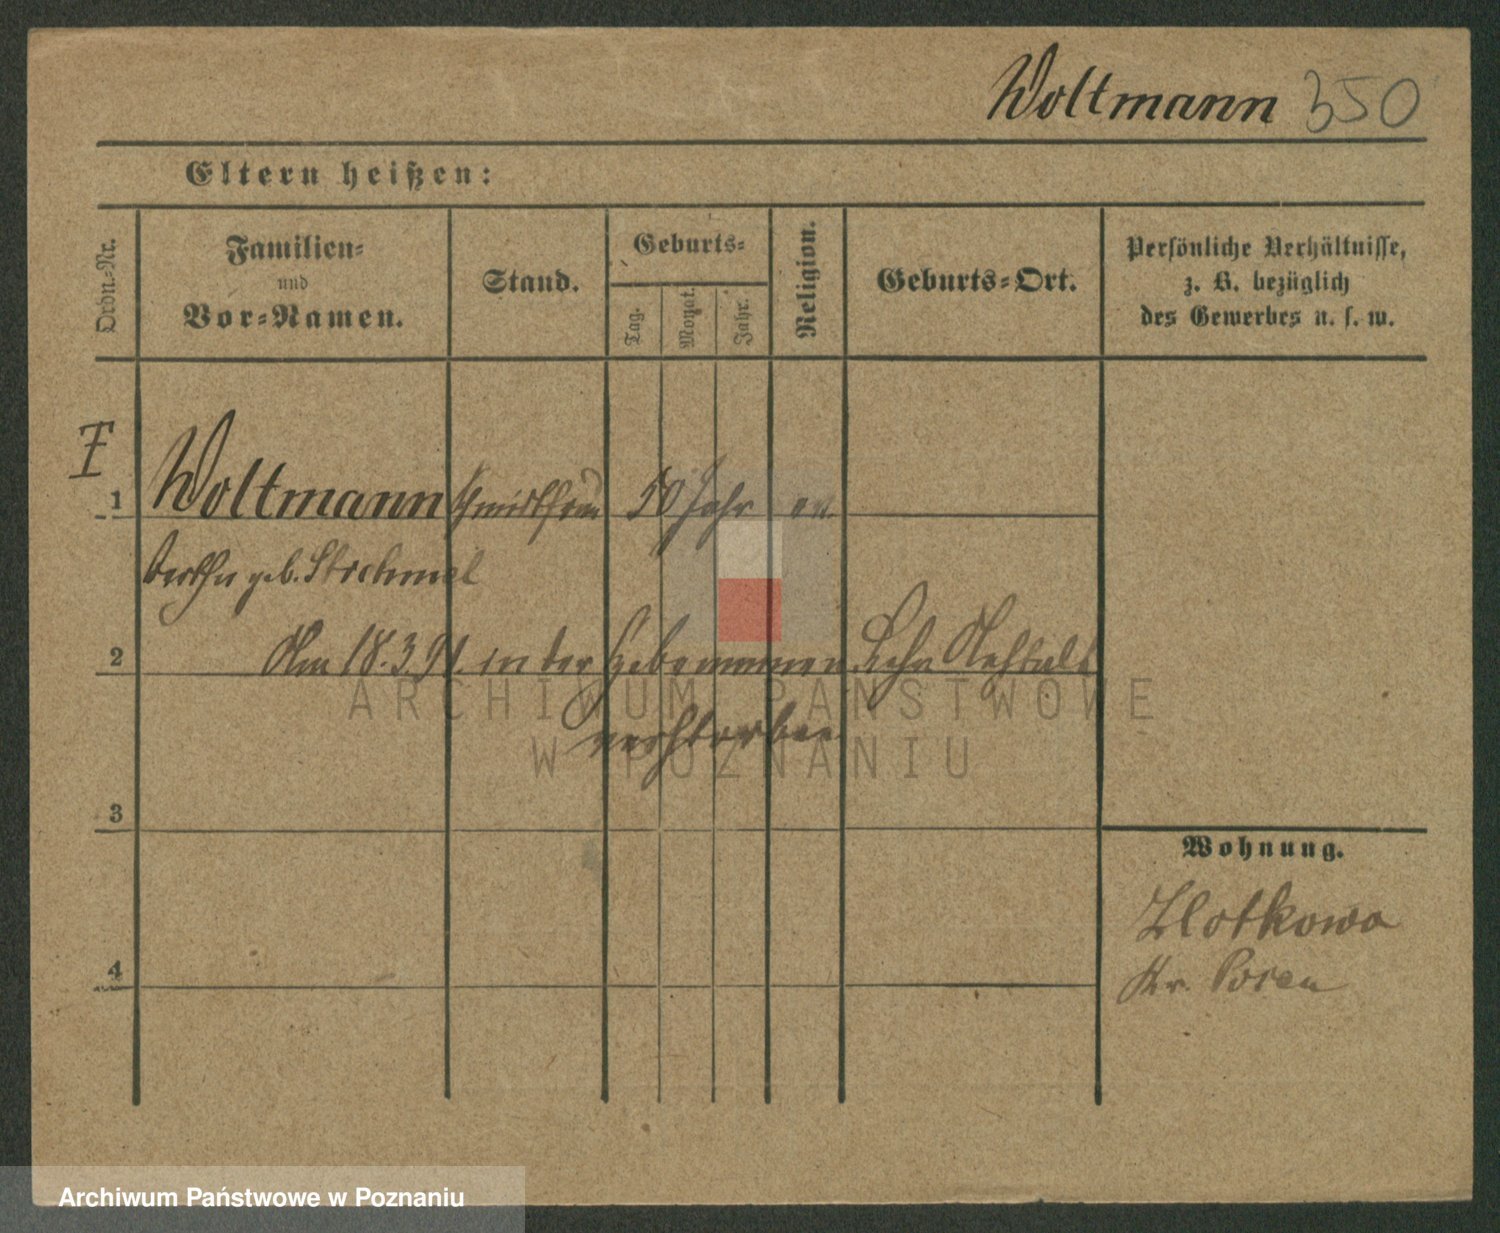 Woltmann 350
Eltern heißen:
Ordn.-Nr.
Familien-
und
Vor-Namen.
Stand.
Geburts-
Tag.
Monat.
Jahr.
Religion.
Geburts-Ort.
Persönliche Verhältnisse,
z. B. bezüglich
des Gewerbes u. s. w.
1 Woltmann 50 Jahr ev.
geb.
2 Am 18.3.91. in der Hebammen Lehr Anstalt
verstorben
3
4
Wohnung.
Zlotkowo
Kr. Posen
ARCHIWUM PAŃSTWOWE
W POZNANIU
Archiwum Państwowe w Poznaniu